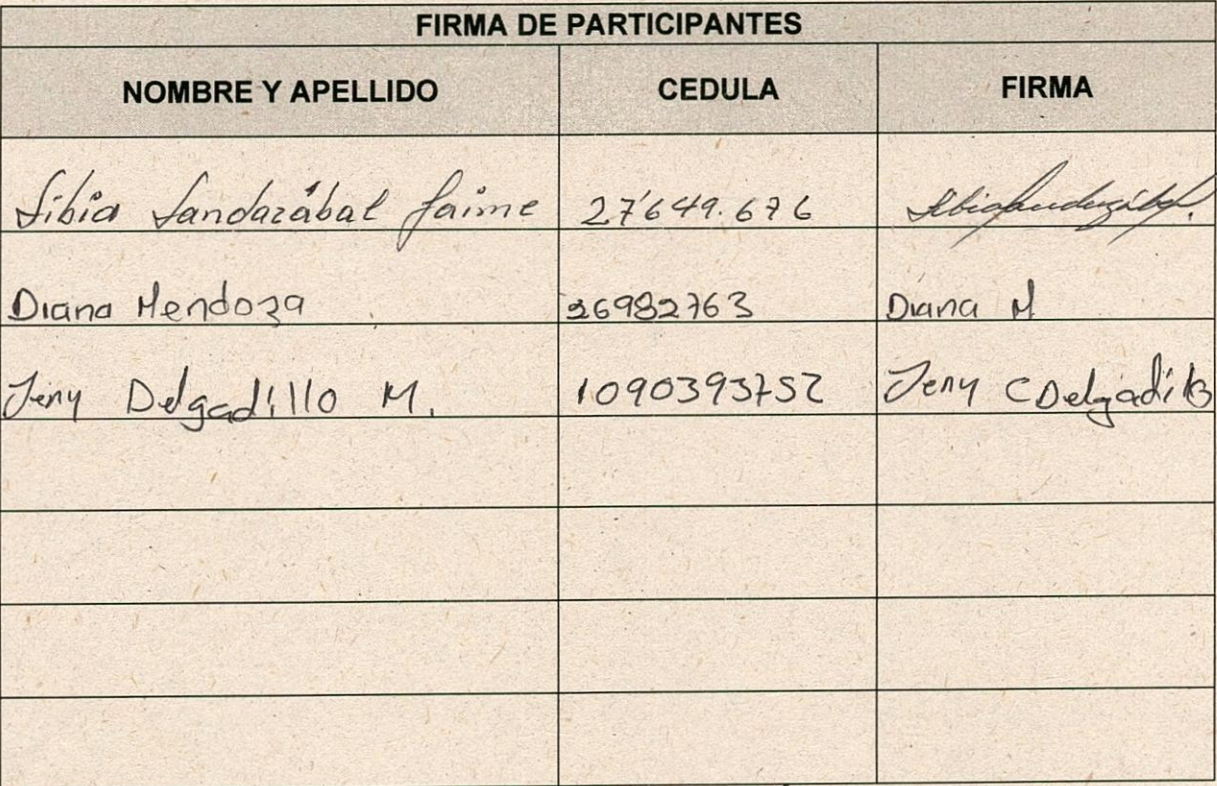 FIRMA DE PARTICIPANTES
NOMBRE Y APELLIDO CEDULA FIRMA
Sibia Sandazábal Jaime 27'649.676
Diana Mendoza 26982763 Diana M
Jeny Delgadillo M. 1090393752 Jeny C Delgadillo